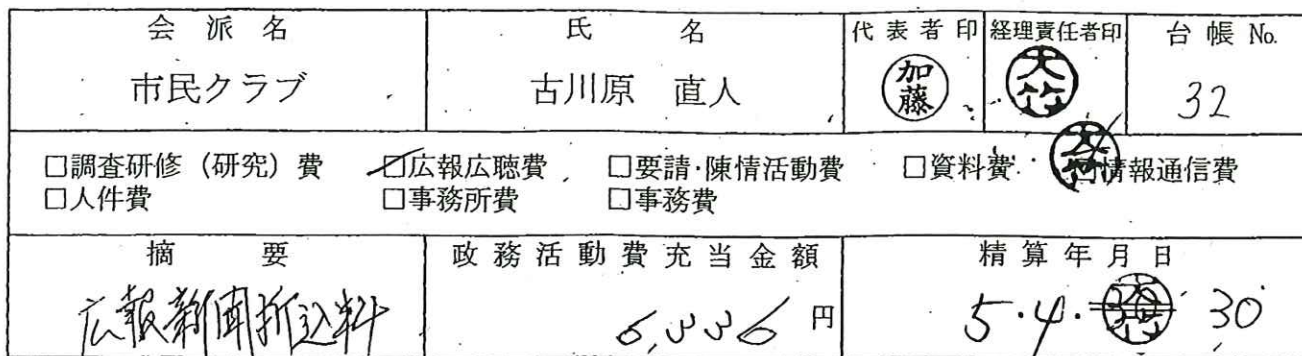 会派名 氏名 代表者印 経理責任者印 台帳 No.
市民クラブ 古川原 直人 加藤 大竹 32
□調査研修（研究）費 ☑広報広聴費 □要請・陳情活動費 □資料費 □情報通信費
□人件費 □事務所費 □事務費
摘要 政務活動費充当金額 精算年月日
広報新聞折込料 円 5・4・ 30